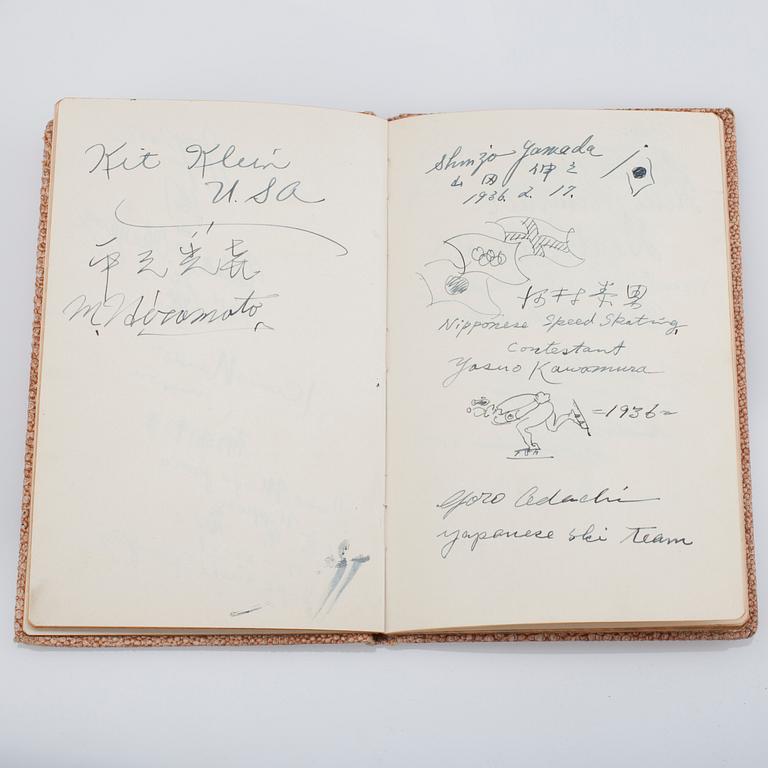 Kit Klein
U.SA
M Hiramoto
Shinzo Yamada
山田伸三
1936. 2. 17.
河村泰男
Nipponese Speed Skating
Contestant
Yasuo Kawamura
=1936=
Goro Adachi
Japanese Ski Team